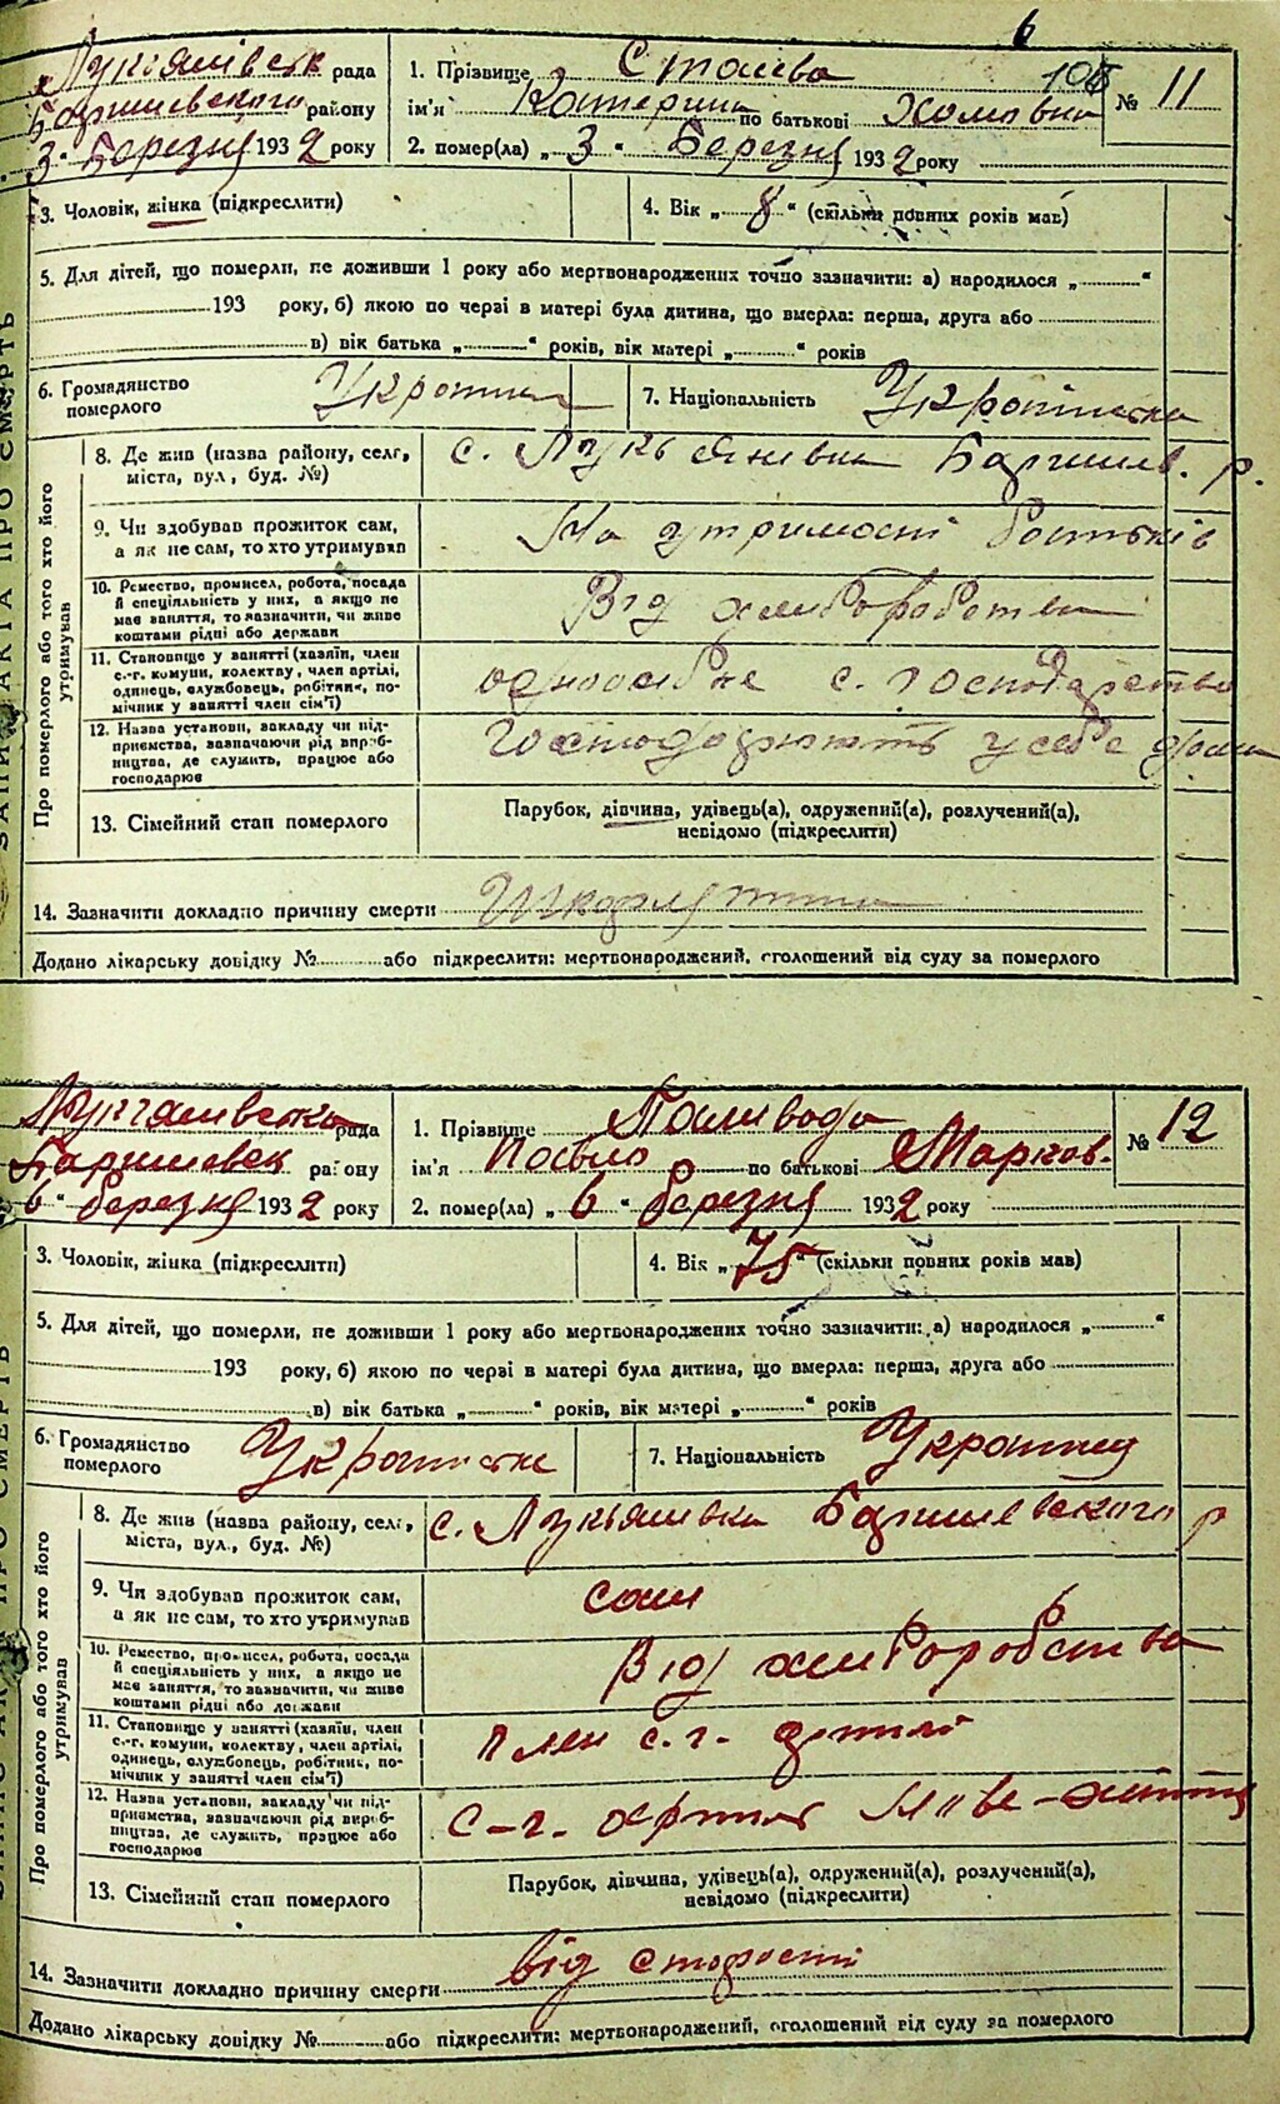 6
Лукянівськ рада
1. Прізвище
106
№ 11
Баришевского району
ім'я Катерина по батькові Хомовна
3 " Березня 1932 року
2. помер(ла) „ 3 " Березня 1932 року
3. Чоловік, жінка (підкреслити)
4. Вік „ 8 " (скільки повних років мав)
5. Для дітей, що померли, не доживши 1 року або мертвонароджених точно зазначити: а) народилося „ "
193 року, б) якою по черзі в матері була дитина, що вмерла: перша, друга або
в) вік батька „ " років, вік матері „ " років
6. Громадянство померлого
7. Національність Українка
Про померлого або того хто його утримував
8. Де жив (назва району, село, міста, вул., буд. №)
с. Лукьянивка Баришев. р.
9. Чи здобував прожиток сам, а як не сам, то хто утримував
На утримані батьків
10. Ремество, промисел, робота, посада й спеціяльність у них, а якщо не має заняття, то зазначити, чи живе коштами рідні або держави
Від хлиборобства
11. Становище у занятті (хазяїн, член с.-г. комуни, колективу, член артілі, одинець, службовець, робітник, помічник у занятті член сім'ї)
одноосібне с. господарство
12. Назва установи, закладу чи підприємства, зазначаючи рід виробництва, де служить, працює або господарює
Господарюють у себе дома
13. Сімейний стан померлого
Парубок, дівчина, удівець(а), одружений(а), розлучений(а),
невідомо (підкреслити)
14. Зазначити докладно причину смерти Шкорлятина
Додано лікарську довідку № або підкреслити: мертвонароджений, оголошений від суду за померлого
Лукянивська рада
1. Прізвище Паливода
№ 12
Баришевск району
ім'я Павло по батькові Марков.
6 " березня 1932 року
2. помер(ла) „ 6 " березня 1932 року
3. Чоловік, жінка (підкреслити)
4. Вік „ 75 " (скільки повних років мав)
5. Для дітей, що померли, не доживши 1 року або мертвонароджених точно зазначити: а) народилося „ "
193 року, б) якою по черзі в матері була дитина, що вмерла: перша, друга або
в) вік батька „ " років, вік матері „ " років
6. Громадянство померлого
7. Національність Українец
Про померлого або того хто його утримував
8. Де жив (назва району, село, міста, вул., буд. №)
с. Лукьянивка Баришевского р
9. Чи здобував прожиток сам, а як не сам, то хто утримував
сам
10. Ремество, промисел, робота, посада й спеціяльність у них, а якщо не має заняття, то зазначити, чи живе коштами рідні або держави
Від хлиборобства
11. Становище у занятті (хазяїн, член с.-г. комуни, колективу, член артілі, одинець, службовець, робітник, помічник у занятті член сім'ї)
член с. г. артилі
12. Назва установи, закладу чи підприємства, зазначаючи рід виробництва, де служить, працює або господарює
с-г. артиль
13. Сімейний стан померлого
Парубок, дівчина, удівець(а), одружений(а), розлучений(а),
невідомо (підкреслити)
14. Зазначити докладно причину смерти від старості
Додано лікарську довідку № або підкреслити: мертвонароджений, оголошений від суду за померлого